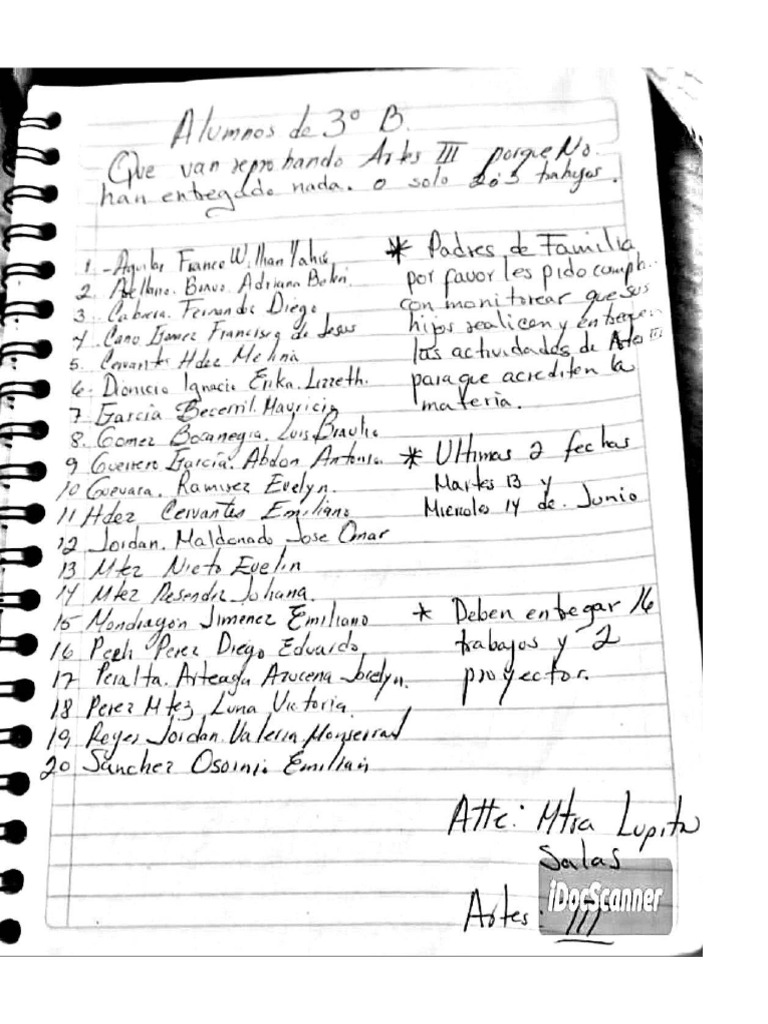 Alumnos de 3° B.
Que van reprobando Artes III porque No.
han entregado nada. o solo 2 o 3 trabajos.
1.- Aguilar Franco William Yahir
2. Arellano. Bravo Adriana Belen.
3. Cabrera. Fernandez Diego
4 Cano Gomez Francisco de Jesus
5. Cervantes Hdez Melina
6. Dionicio Ignacio Erika. Lizzeth.
7 Garcia Becerril. Mauricio
8. Gomez Bocanegra. Luis Braulio
9 Guerrero García. Abdon Antonio.
10 Guevara. Ramirez Evelyn.
11 Hdez Cervantes Emiliano
12 Jordan. Maldonado Jose Omar
13 Mtez Nieto Evelin
14 Mtez Resendiz Johana.
15 Mondragon Jimenez Emiliano
16 Perez Diego Eduardo
17 Peralta. Arteaga Azucena Jocelyn.
18 Perez Mtez Luna Victoria.
19 Reyes Jordan. Valeria Monserrad
20 Sanchez Osornio Emilian
* Padres de Familia
por favor les pido
con monitorear que sus
hijos realicen y entreguen
las actividades de Artes III
para que acrediten la
materia.
* Ultimas 2 fechas
Martes 13 y
Miercoles 14 de. Junio
* Deben entregar 16
trabajos y 2
proyectos.
Atte: Mtra Lupita
Salas
Artes: III
iDocScanner